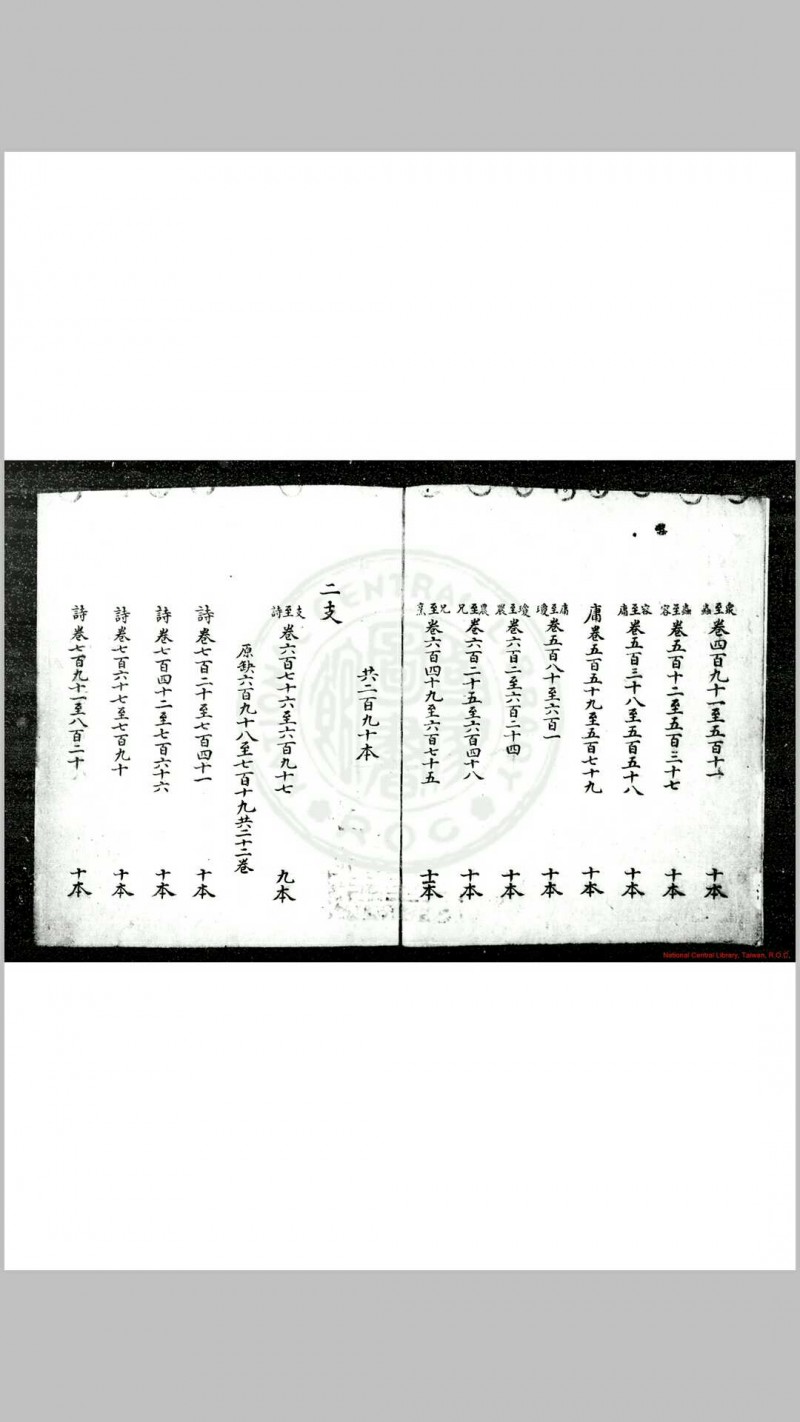 衆至蟲 卷四百九十一至五百十一 十本
蟲至容 卷五百十二至五百三十七 十本
容至庸 卷五百三十八至五百五十八 十本
庸 卷五百五十九至五百七十九 十本
庸至瓊 卷五百八十至六百一 十本
瓊至農 卷六百二至六百二十四 十本
農至兄 卷六百二十五至六百四十八 十本
兄至 卷六百四十九至六百七十五 十二本
共二百九十本
二支
支至詩 卷六百七十六至六百九十七 九本
原缺六百九十八至七百十九共二十二卷
詩 卷七百二十至七百四十一 十本
詩 卷七百四十二至七百六十六 十本
詩 卷七百六十七至七百九十 十本
詩 卷七百九十一至八百二十 十本
National Central Library, Taiwan, R.O.C.